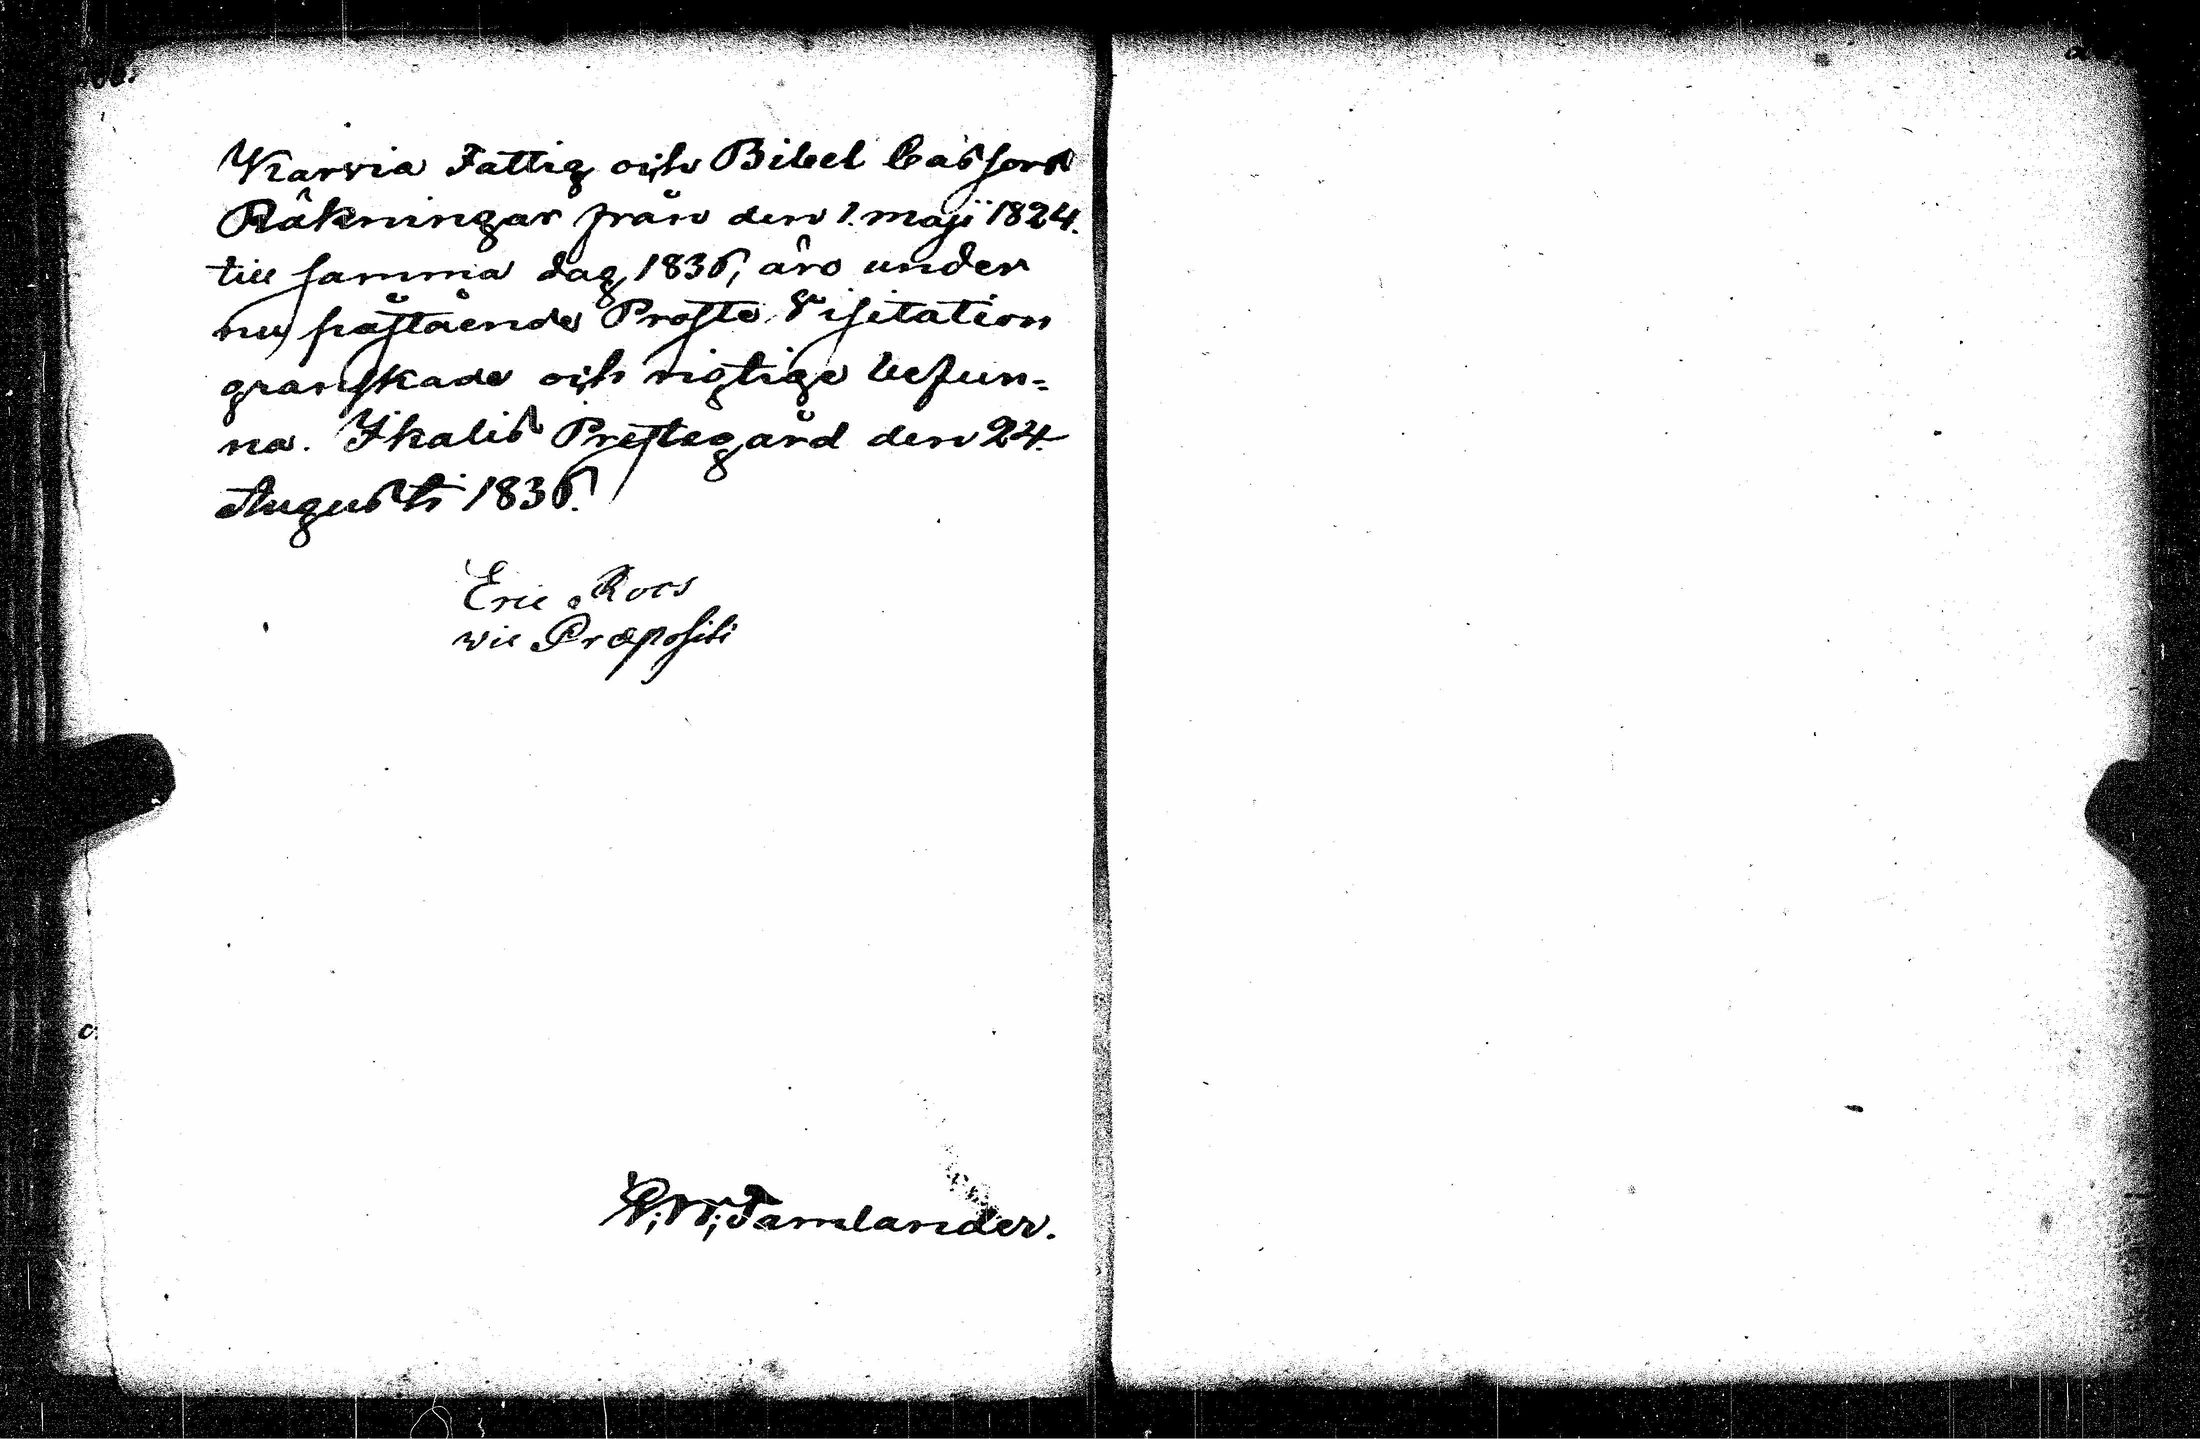 Karvia Fattig och Bibel Cassors
Räkningar från den 1. Maji 1824.
till samma dag 1836, äro under
nu påstående Proste Visitation
granskade och rigtige befun-
na. Ikalis Prestegård den 24.
Augusti 1836.
Eric Roos
vic Præpositi
Tamlander.